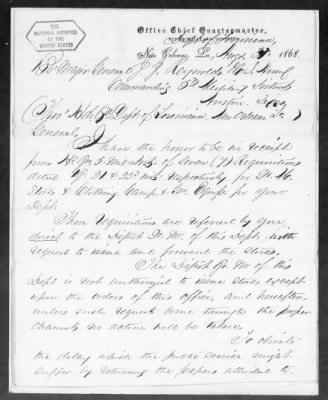 THE
NATIONAL ARCHIVES
OF THE
UNITED STATES
Office Chief Quartermaster,
New Orleans, La., 1868.
Bt Major General J. J. Reynolds U.S. Army
Commanding 5th Military District
Austin, Texas
Dept of Louisiana New Orleans La
General,
I have the honor to be in receipt
from of seven (7) Requisitions
dated 21 & 22 respectively for
Stores & Clothing Camp & Equipe for your
Dept.
These requisitions are referred by you
direct to the Depot Q. M. of this Dept, with
request to issue and forward the stores.
The Depot Q M of this
Dept is not authorized to issue stores except
upon the orders of this office, and hereafter,
unless such request come through the proper
channels no action will be taken
To obviate
the delay which the public service might
suffer by returning the papers alluded to